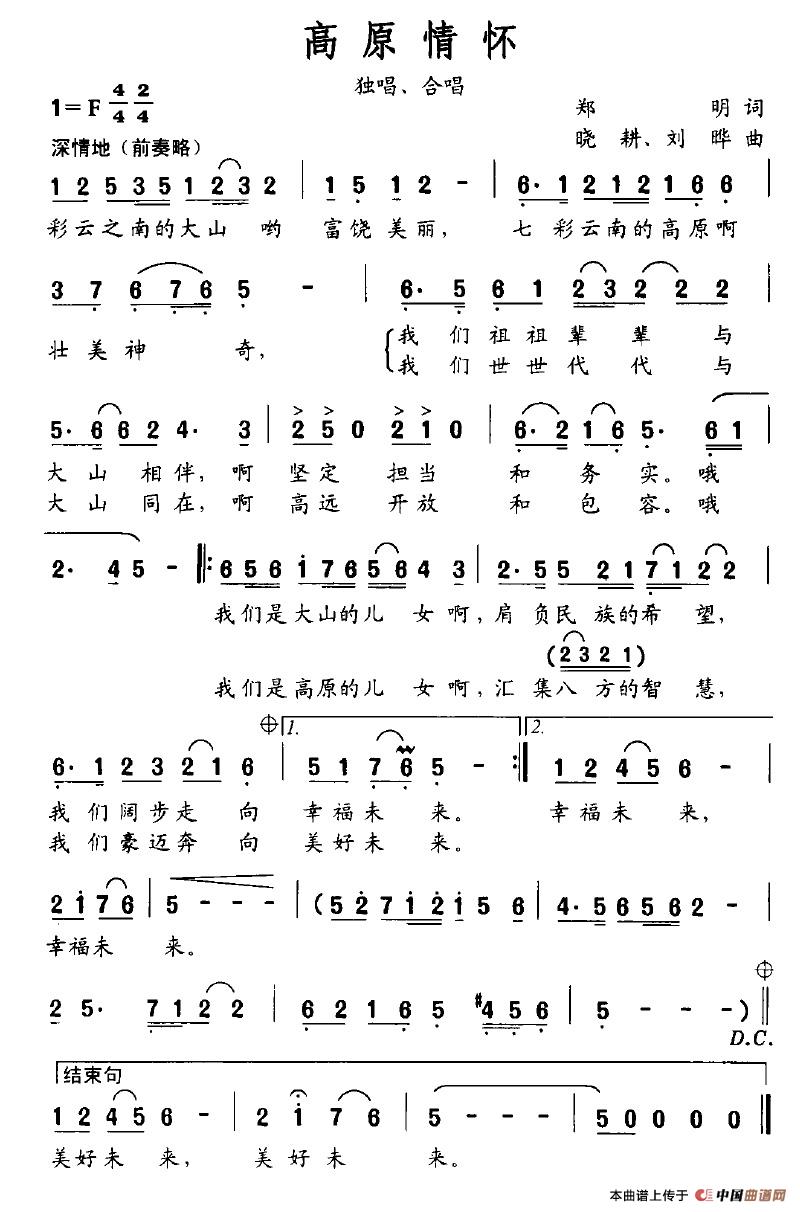 高原情怀
独唱、合唱
1=F 4/4 2/4
郑 明 词
深情地（前奏略）
晓 耕、刘 晔 曲
1 2 5 3 5 1 2 3 2 | 1 5 1 2 - | 6· 1 2 1 2 1 6 6 |
彩云之南的大山 哟 富饶美丽， 七 彩云南的高原啊
3 7 6 7 6 5 - | 6· 5 6 1 2 3 2 2 2 |
壮美神 奇， 我 们 祖祖辈 辈 与
我 们 世世代 代 与
5· 6 6 2 4· 3 | 2 5 0 2 1 0 | 6· 2 1 6 5· 6 1 |
大山 相伴，啊 坚定 担当 和 务 实。哦
大山 同在，啊 高远 开放 和 包 容。哦
2· 4 5 - |: 6 5 6 1 7 6 5 6 4 3 | 2· 5 5 2 1 7 1 2 2 |
我们是大山的儿 女啊，肩 负民 族的希 望，
(2 3 2 1)
我们是高原的儿 女啊，汇 集八 方的智 慧，
1. 2.
6· 1 2 3 2 1 6 | 5 1 7 6 5· - :| 1 2 4 5 6 - |
我 们 阔步走 向 幸福未 来。 幸福未 来，
我 们 豪迈奔 向 美好未 来。
2 1 7 6 | 5 - - - | (5 2 7 1 2 1 5 6 | 4· 5 6 5 6 2 - |
幸福未 来。
2 5· 7 1 2 2 | 6 2 1 6 5 #4 5 6 | 5 - - -) ‖
D.C.
结束句
1 2 4 5 6 - | 2 1 7 6 | 5 - - - | 5 0 0 0 0 ‖
美好未 来， 美 好未 来。
本曲谱上传于 中国曲谱网